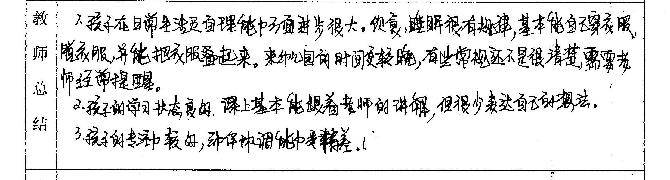 教师总结
1.孩子在日常生活自理能力方面进步很大。饮食、睡眠很有规律,基本能自己穿衣服,
脱衣服,并能把衣服叠起来。来幼儿园的时间较晚,有些常规还不是很清楚,需要老
师经常提醒。
2.孩子的学习状态良好,课上基本能跟着老师的讲解,但很少表达自己的想法。
3.孩子的专注力较好,动作协调能力要稍差。